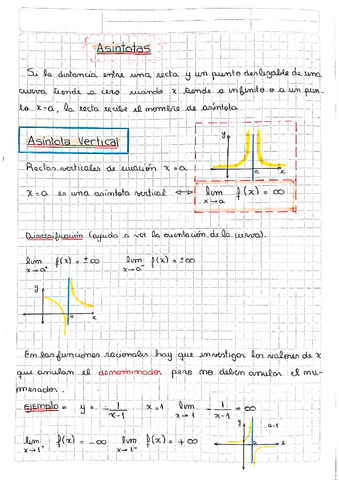 Asíntotas
Si la distancia entre una recta y un punto deslizable de una
curva tiende a cero cuando x tiende a infinito o a un pun-
to x=a, la recta recibe el nombre de asíntota
Asíntota Vertical
y
a
x
Rectas verticales de ecuación x=a
x=a es una asíntota vertical ⟺ lim f(x) = ∞
x→a
Diversificación (ayuda a ver la orientación de la curva).
lim f(x) = ±∞ lim f(x) = ±∞
x→a⁺ x→a⁻
y
a
x
En las funciones racionales hay que investigar los valores de x
que anulan el denominador pero no deben anular el nu-
merador.
Ejemplo = y = - 1/x-1 x=1 lim - 1/x-1 = ∞
x→1
lim f(x) = -∞ lim f(x) = +∞
x→1⁺ x→1⁻
y
a=1
x